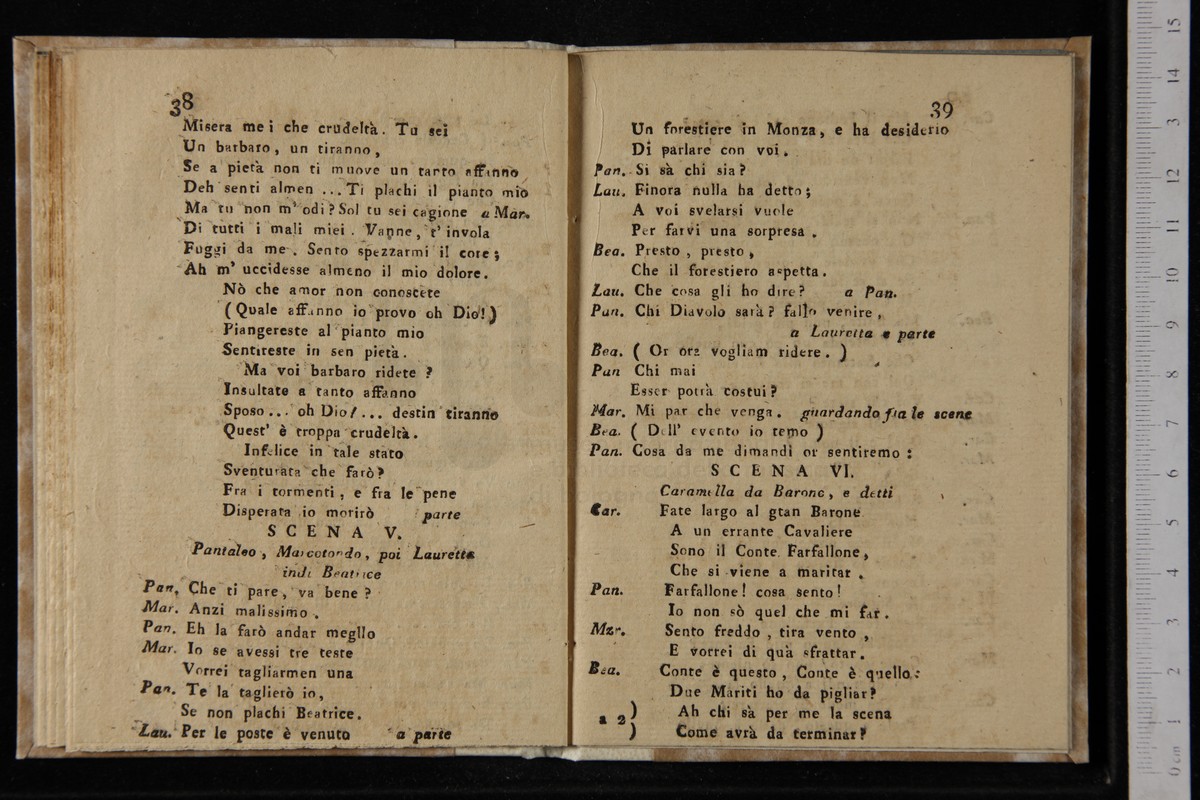 38
Misera me i che crudeltà. Tu sei
Un barbaro, un tiranno,
Se a pietà non ti muove un tanto affanno
Deh senti almen ... Ti plachi il pianto mio
Ma tu non m' odi? Sol tu sei cagione a Mar.
Di tutti i mali miei. Vanne, t' invola
Fuggi da me. Sento spezzarmi il core;
Ah m' uccidesse almeno il mio dolore.
Nò che amor non conoscete
(Quale affanno io provo oh Dio!)
Piangereste al pianto mio
Sentireste in sen pietà.
Ma voi barbaro ridete?
Insultate a tanto affanno
Sposo... oh Dio!... destin tiranno
Quest' è troppa crudeltà.
Infelice in tale stato
Sventurata che farò?
Fra i tormenti, e fra le pene
Disperata io morirò parte
SCENA V.
Pantaleo, Marcotondo, poi Lauretta
indi Beatrice
Pan. Che ti pare, va bene?
Mar. Anzi malissimo.
Pan. Eh la farò andar megllo
Mar. Io se avessi tre teste
Vorrei tagliarmen una
Pan. Te la taglierò io,
Se non plachi Beatrice.
Lau. Per le poste è venuto a parte
39
Un forestiere in Monza, e ha desiderio
Di parlare con voi.
Pan. Si sà chi sia?
Lau. Finora nulla ha detto;
A voi svelarsi vuole
Per farvi una sorpresa.
Bea. Presto, presto,
Che il forestiero aspetta.
Lau. Che cosa gli ho dire? a Pan.
Pan. Chi Diavolo sarà? fallo venire,
a Lauretta e parte
Bea. ( Or ora vogliam ridere. )
Pan Chi mai
Esser potrà costui?
Mar. Mi par che venga. guardando fra le scene
Bea. ( Dell' evento io temo )
Pan. Cosa da me dimandi or sentiremo:
SCENA VI.
Caramella da Barone, e detti
Car. Fate largo al gtan Barone
A un errante Cavaliere
Sono il Conte Farfallone,
Che si viene a maritar.
Pan. Farfallone! cosa sento!
Io non sò quel che mi far.
Mar. Sento freddo, tira vento,
E vorrei di quà sfrattar.
Bea. Conte è questo, Conte è quello:
Due Mariti ho da pigliar?
a 2 ) Ah chi sà per me la scena
) Come avrà da terminar?